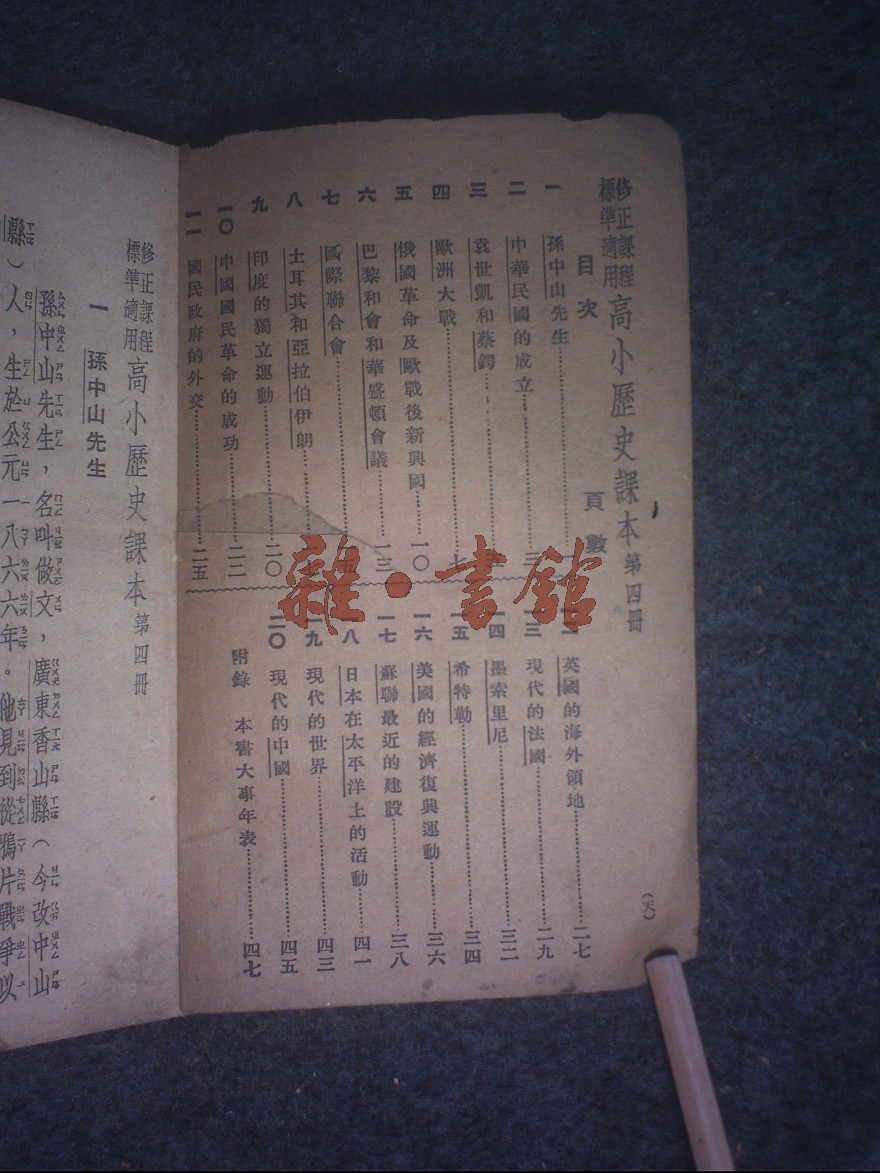 修正課程標準適用 高小歷史課本 第四冊
目次 頁數
一 孫中山先生
二 中華民國的成立 三
三 袁世凱和蔡鍔
四 歐洲大戰 七
五 俄國革命及歐戰後新興國 一〇
六 巴黎和會和華盛頓會議 一三
七 國際聯合會
八 土耳其和亞拉伯伊朗
九 印度的獨立運動 二〇
一〇 中國國民革命的成功 二二
一一 國民政府的外交 二五
一二 英國的海外領地 二七
一三 現代的法國 二九
一四 墨索里尼 三二
一五 希特勒 三四
一六 美國的經濟復興運動 三六
一七 蘇聯最近的建設 三八
一八 日本在太平洋上的活動 四一
一九 現代的世界 四三
二〇 現代的中國 四五
附錄 本書大事年表 四七
(天)
雜·書館
修正課程標準適用 高小歷史課本 第四冊
一 孫中山先生
孫中山先生，名叫做文，廣東香山縣（今改中山
縣）人，生於公元一八六六年。他見到從鴉片戰爭以